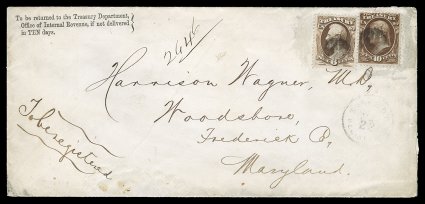 To be returned to the Treasury Department,
Office of Internal Revenue, if not delivered
in TEN days.
Harrison Wagner, M.D,
Woodsboro,
Frederick Co,
Maryland.
To be registered